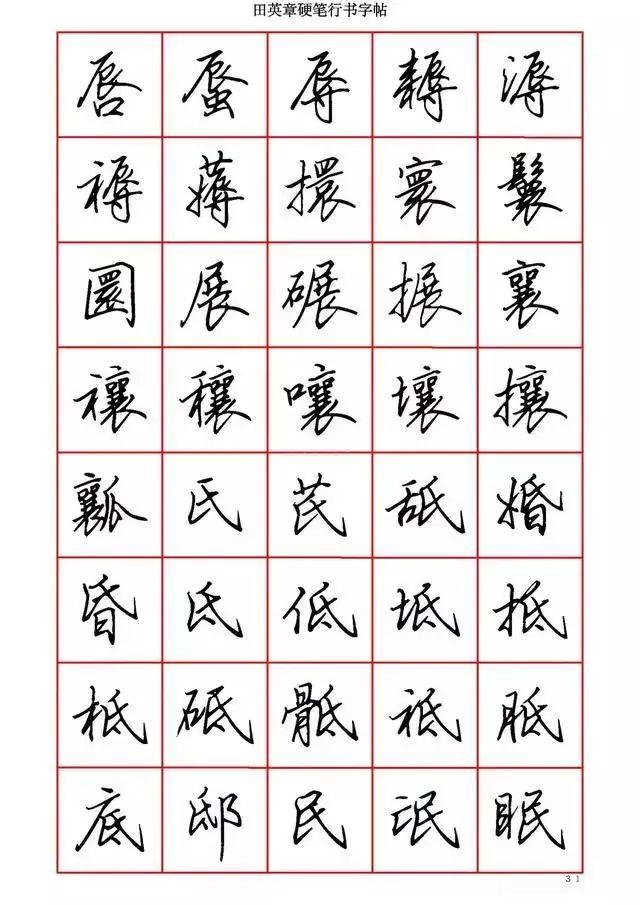 田英章硬笔行书字帖
唇 蜃 辱 耨 溽
褥 薅 擐 寰 鬟
圜 展 碾 搌 襄
禳 穰 嚷 壤 攘
瓤 氏 芪 舐 婚
昏 氐 低 坻 抵
柢 砥 骶 祗 胝
底 邸 民 氓 眠
31